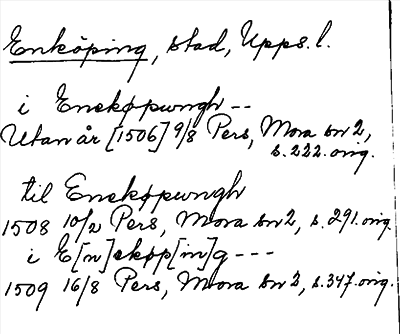 Enköping, stad, Upps.l.
i Enekøpwngh --
Utan år [1506] 9/8 Pers, Mora sn 2,
s.222.orig.
til Enekøpwngh
1508 10/2 Pers, Mora sn 2, s.291.orig.
i E[n]ekøp[in]g ---
1509 16/8 Pers, Mora sn 2, s.347.orig.